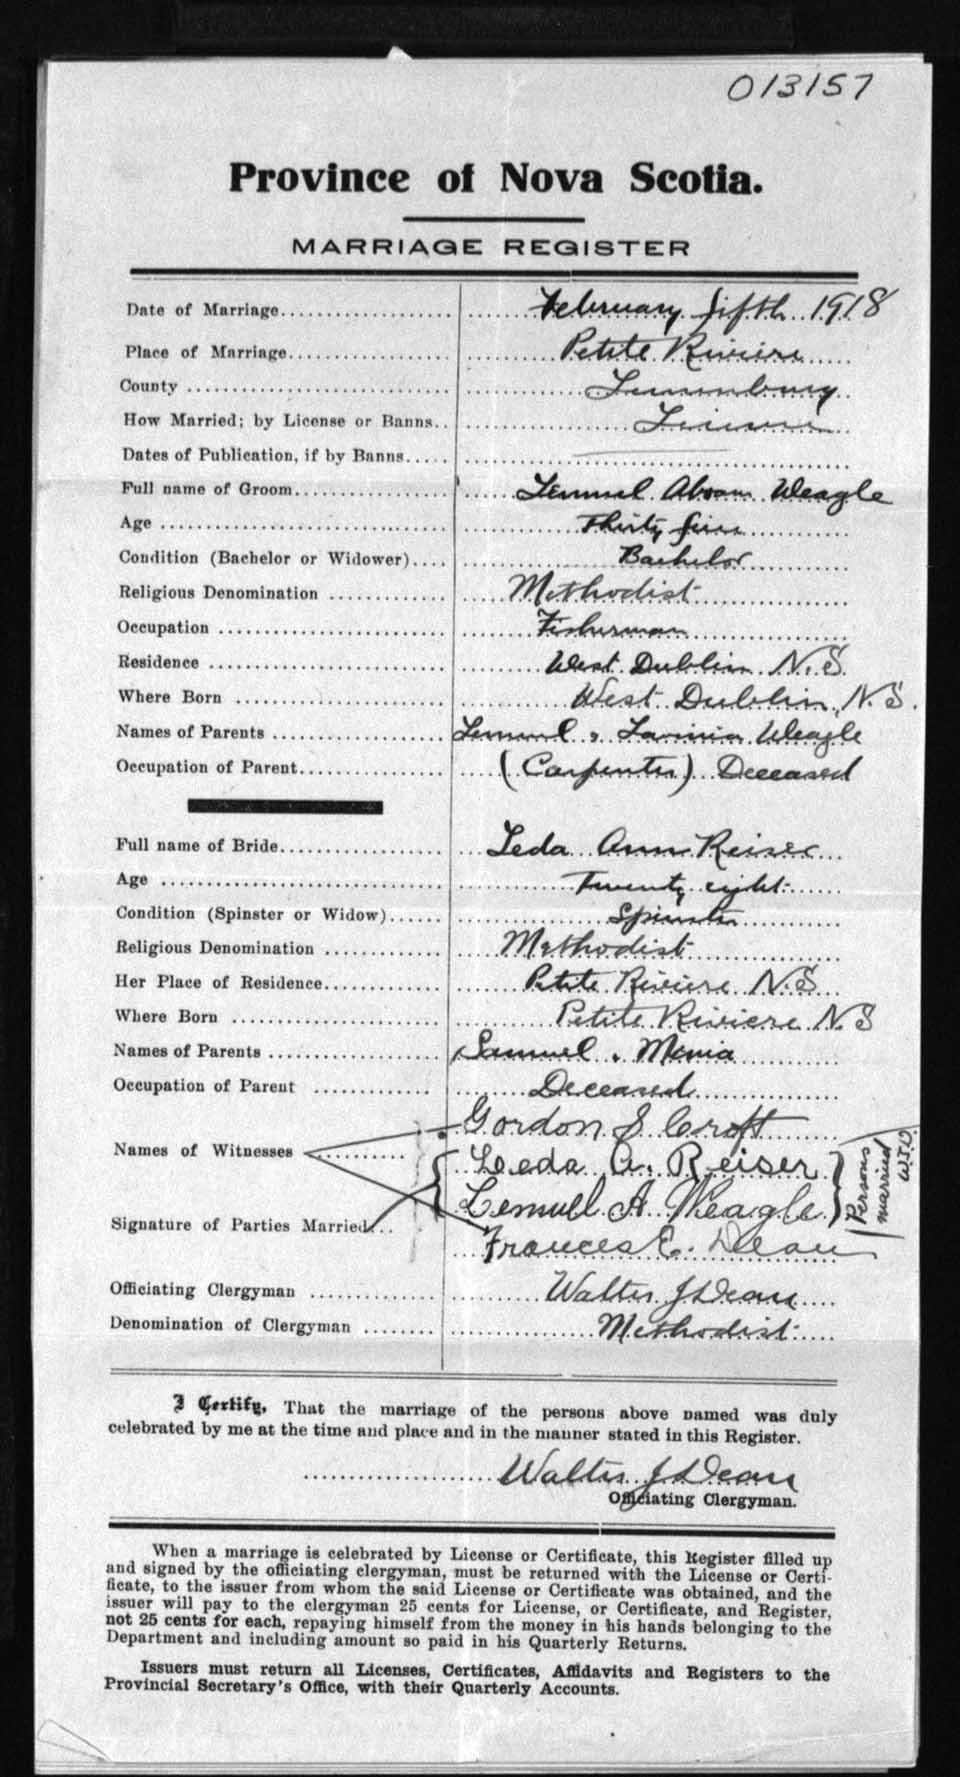 013157
Province of Nova Scotia.
MARRIAGE REGISTER
Date of Marriage February fifth 1918
Place of Marriage Petite Riviere
County Lunenburg
How Married; by License or Banns License
Dates of Publication, if by Banns
Full name of Groom Lemuel Abram Weagle
Age Thirty five
Condition (Bachelor or Widower) Bachelor
Religious Denomination Methodist
Occupation Fisherman
Residence West Dublin N.S.
Where Born West Dublin, N.S.
Names of Parents Lemuel & Lavinia Weagle
Occupation of Parent (Carpenter) Deceased
Full name of Bride Leda Ann Reiser
Age Twenty eight
Condition (Spinster or Widow) Spinster
Religious Denomination Methodist
Her Place of Residence Petite Riviere N.S.
Where Born Petite Riviere N S
Names of Parents Samuel &
Occupation of Parent Deceased
Gordon S Croft
Names of Witnesses Leda A. Reiser
Lemuel A Weagle
Persons married W.J.D.
Signature of Parties Married
Frances E. Dean
Officiating Clergyman Walter J Dean
Denomination of Clergyman Methodist
I Certify, That the marriage of the persons above named was duly
celebrated by me at the time and place and in the manner stated in this Register.
Walter J Dean
Officiating Clergyman.
When a marriage is celebrated by License or Certificate, this Register filled up
and signed by the officiating clergyman, must be returned with the License or Certi-
ficate, to the issuer from whom the said License or Certificate was obtained, and the
issuer will pay to the clergyman 25 cents for License, or Certificate, and Register,
not 25 cents for each, repaying himself from the money in his hands belonging to the
Department and including amount so paid in his Quarterly Returns.
Issuers must return all Licenses, Certificates, Affidavits and Registers to the
Provincial Secretary's Office, with their Quarterly Accounts.